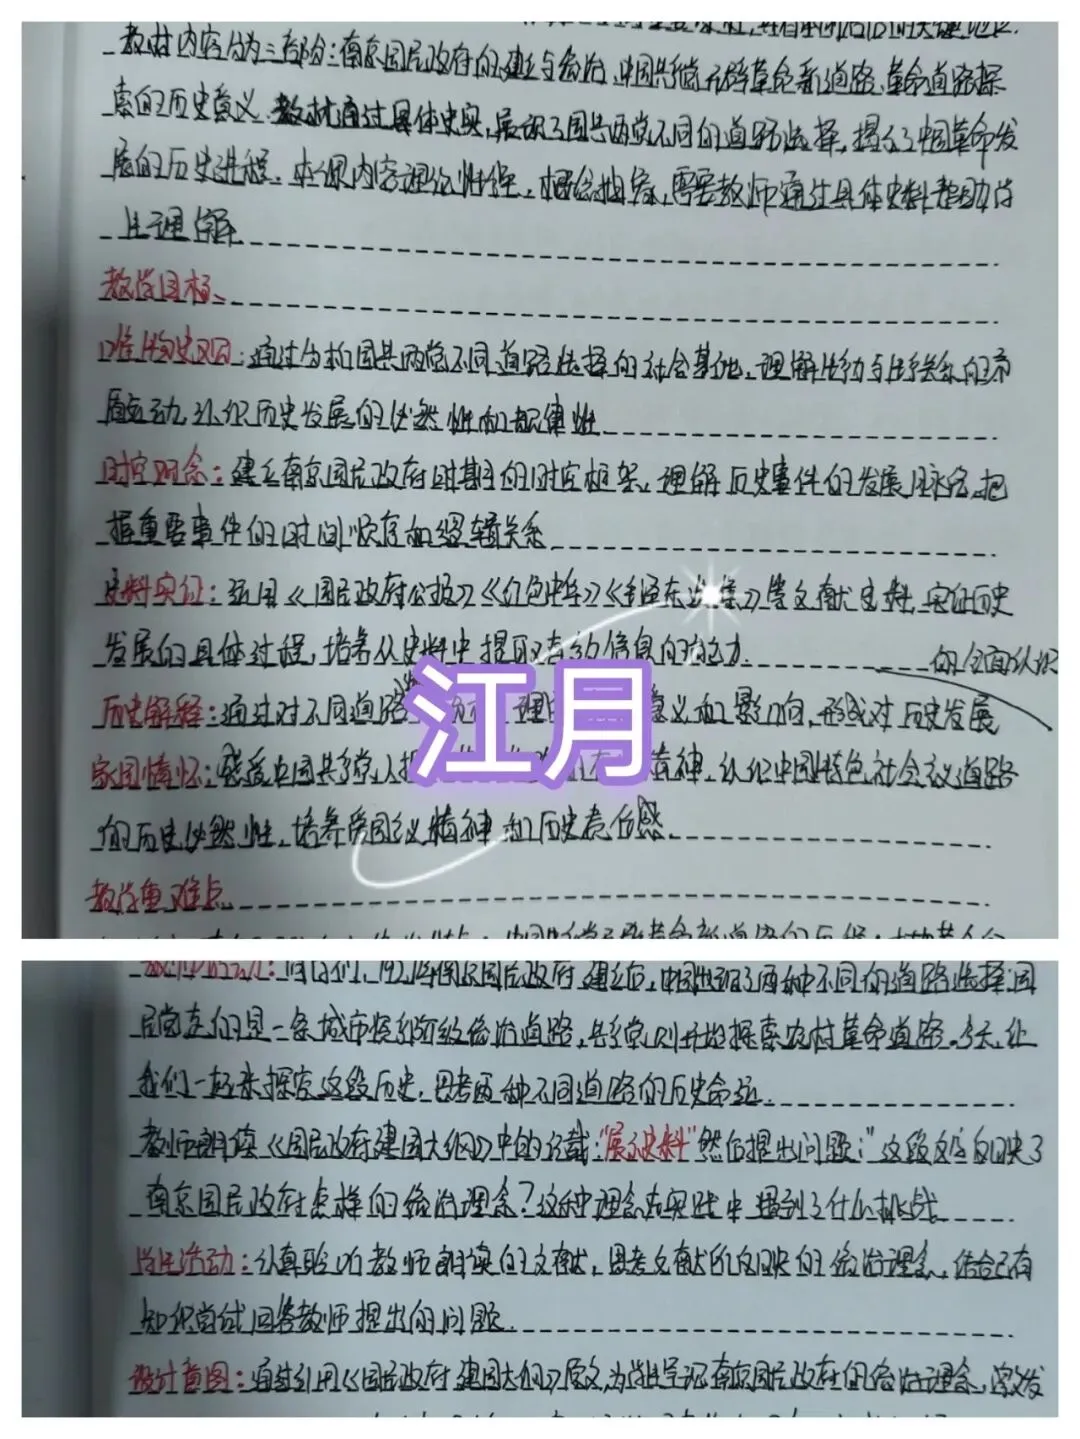 教材内容分为三部分：南京国民政府的建立与统治、中国共产党开辟革命新道路、革命道路探
索的历史意义。教材通过具体史实，展现了国共两党不同的道路选择，揭示了中国革命发
展的历史进程。本课内容理论性强，概念抽象，需要教师通过具体史料帮助学
生理解
教学目标
唯物史观：通过分析国共两党不同道路选择的社会基础，理解生产力与生产关系的矛
盾运动，认识历史发展的必然性和规律性
时空观念：建立南京国民政府时期的时空框架，理解历史事件的发展脉络，把
握重要事件的时间顺序和逻辑关系
史料实证：运用《国民政府公报》《红色中华》《毛泽东选集》等文献史料，实证历史
发展的具体过程，培养从史料中提取有效信息的能力
的全面认识
历史解释：通过对不同道路 意义和影响，形成对历史发展
江月
家国情怀：感受中国共产党人 精神，认识中国特色社会主义道路
的历史必然性，培养爱国主义精神和历史责任感
教学重难点
教师活动：同学们，1927年南京国民政府建立后，中国出现了两种不同的道路选择，国
民党走的是一条城市 统治道路，共产党则开始探索农村革命道路。今天，让
我们一起来探究这段历史，思考两种不同道路的历史命运
教师朗读《国民政府建国大纲》中的记载："展示史料"然后提出问题："这段文字反映了
南京国民政府怎样的统治理念？这种理念在实践中遇到了什么挑战
学生活动：认真聆听教师朗读的文献，思考文献所反映的统治理念，结合已有
知识尝试回答教师提出的问题
设计意图：通过引用《国民政府建国大纲》原文，为学生呈现南京国民政府的统治理念，激发